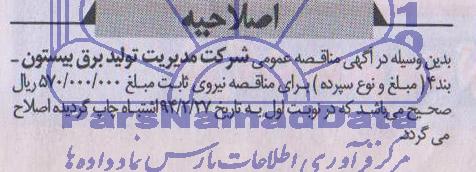 اصلاحیه
بدین وسیله در آگهی مناقصه عمومی شرکت مدیریت تولید برق بیستون -
بند ۴ ( مبلغ و نوع سپرده ) برای مناقصه نیروی ثابت مبلغ ۵۷۰/۰۰۰/۰۰۰ ریال
صحیح می‌باشد که در نوبت اول به تاریخ ۹۴/۲/۲۷ اشتباه چاپ گردیده اصلاح
می گردد
ParsNamadData
مرکز فرآوری اطلاعات پارس نماد داده ها